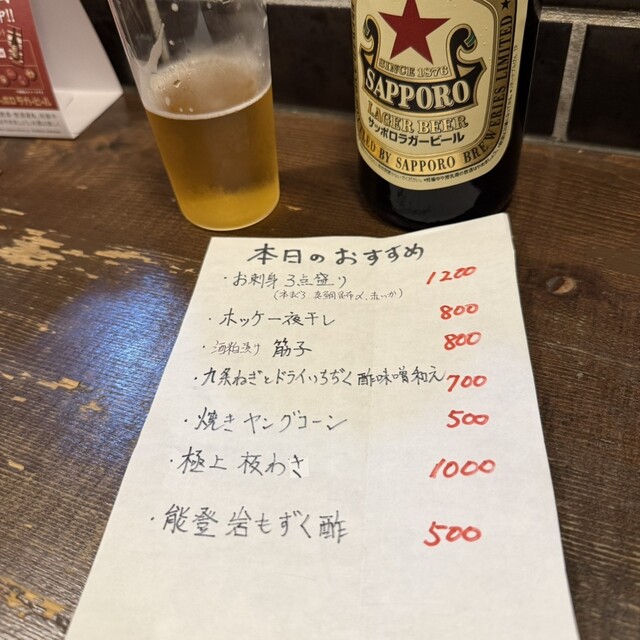 SINCE 1876
SAPPORO
LAGER BEER
サッポロラガービール
BY SAPPORO BREWERIES LIMITED
本日のおすすめ
・お刺身 3点盛り 1200
赤いか)
・ホッケ一夜干し 800
・酒粕漬け 筋子 800
・九条ねぎとドライいちぢく酢味噌和え 700
・焼きヤングコーン 500
・極上 板わさ 1000
・能登岩もずく酢 500